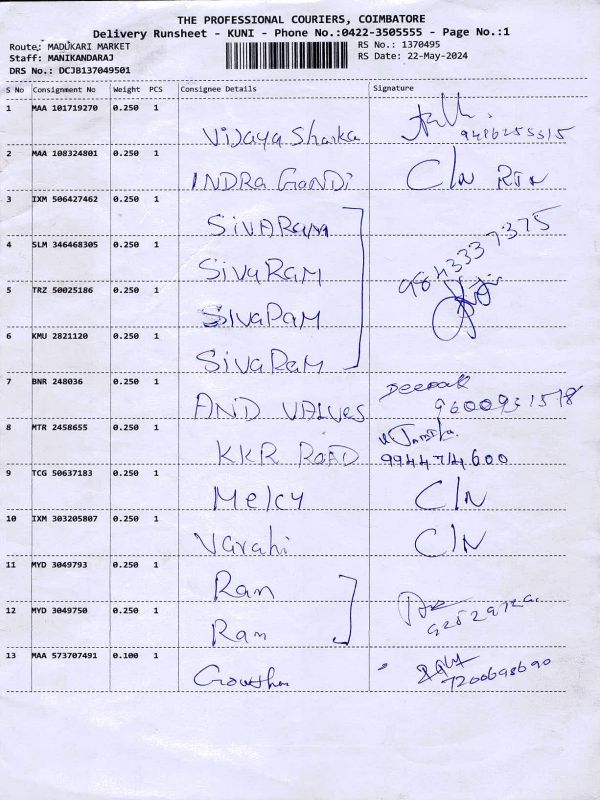 THE PROFESSIONAL COURIERS, COIMBATORE
Delivery Runsheet - KUNI - Phone No.:0422-3505555 - Page No.:1
Route: MADUKARI MARKET RS No.: 1370495
Staff: MANIKANDARAJ RS Date: 22-May-2024
DRS No.: DCJB137049501
S No Consignment No Weight PCS Consignee Details Signature
1 MAA 101719270 0.250 1
Vijaya Sharka
2 MAA 108324801 0.250 1
INDRA GANDi C/N
3 IXM 506427462 0.250 1
SivARam
9843337375
4 SLM 346468305 0.250 1
SivaRam
5 TRZ 50025186 0.250 1
SivaRam
6 KMU 2821120 0.250 1
SivaRam
7 BNR 248036 0.250 1 Deepak
AND VALVES
8 MTR 2458655 0.250 1
KKR ROAD 9944714600
9 TCG 50637183 0.250 1
Melcy C/N
10 IXM 303205807 0.250 1
Varahi C/N
11 MYD 3049793 0.250 1
Ram
12 MYD 3049750 0.250 1
Ram
13 MAA 573707491 0.100 1
7200698690